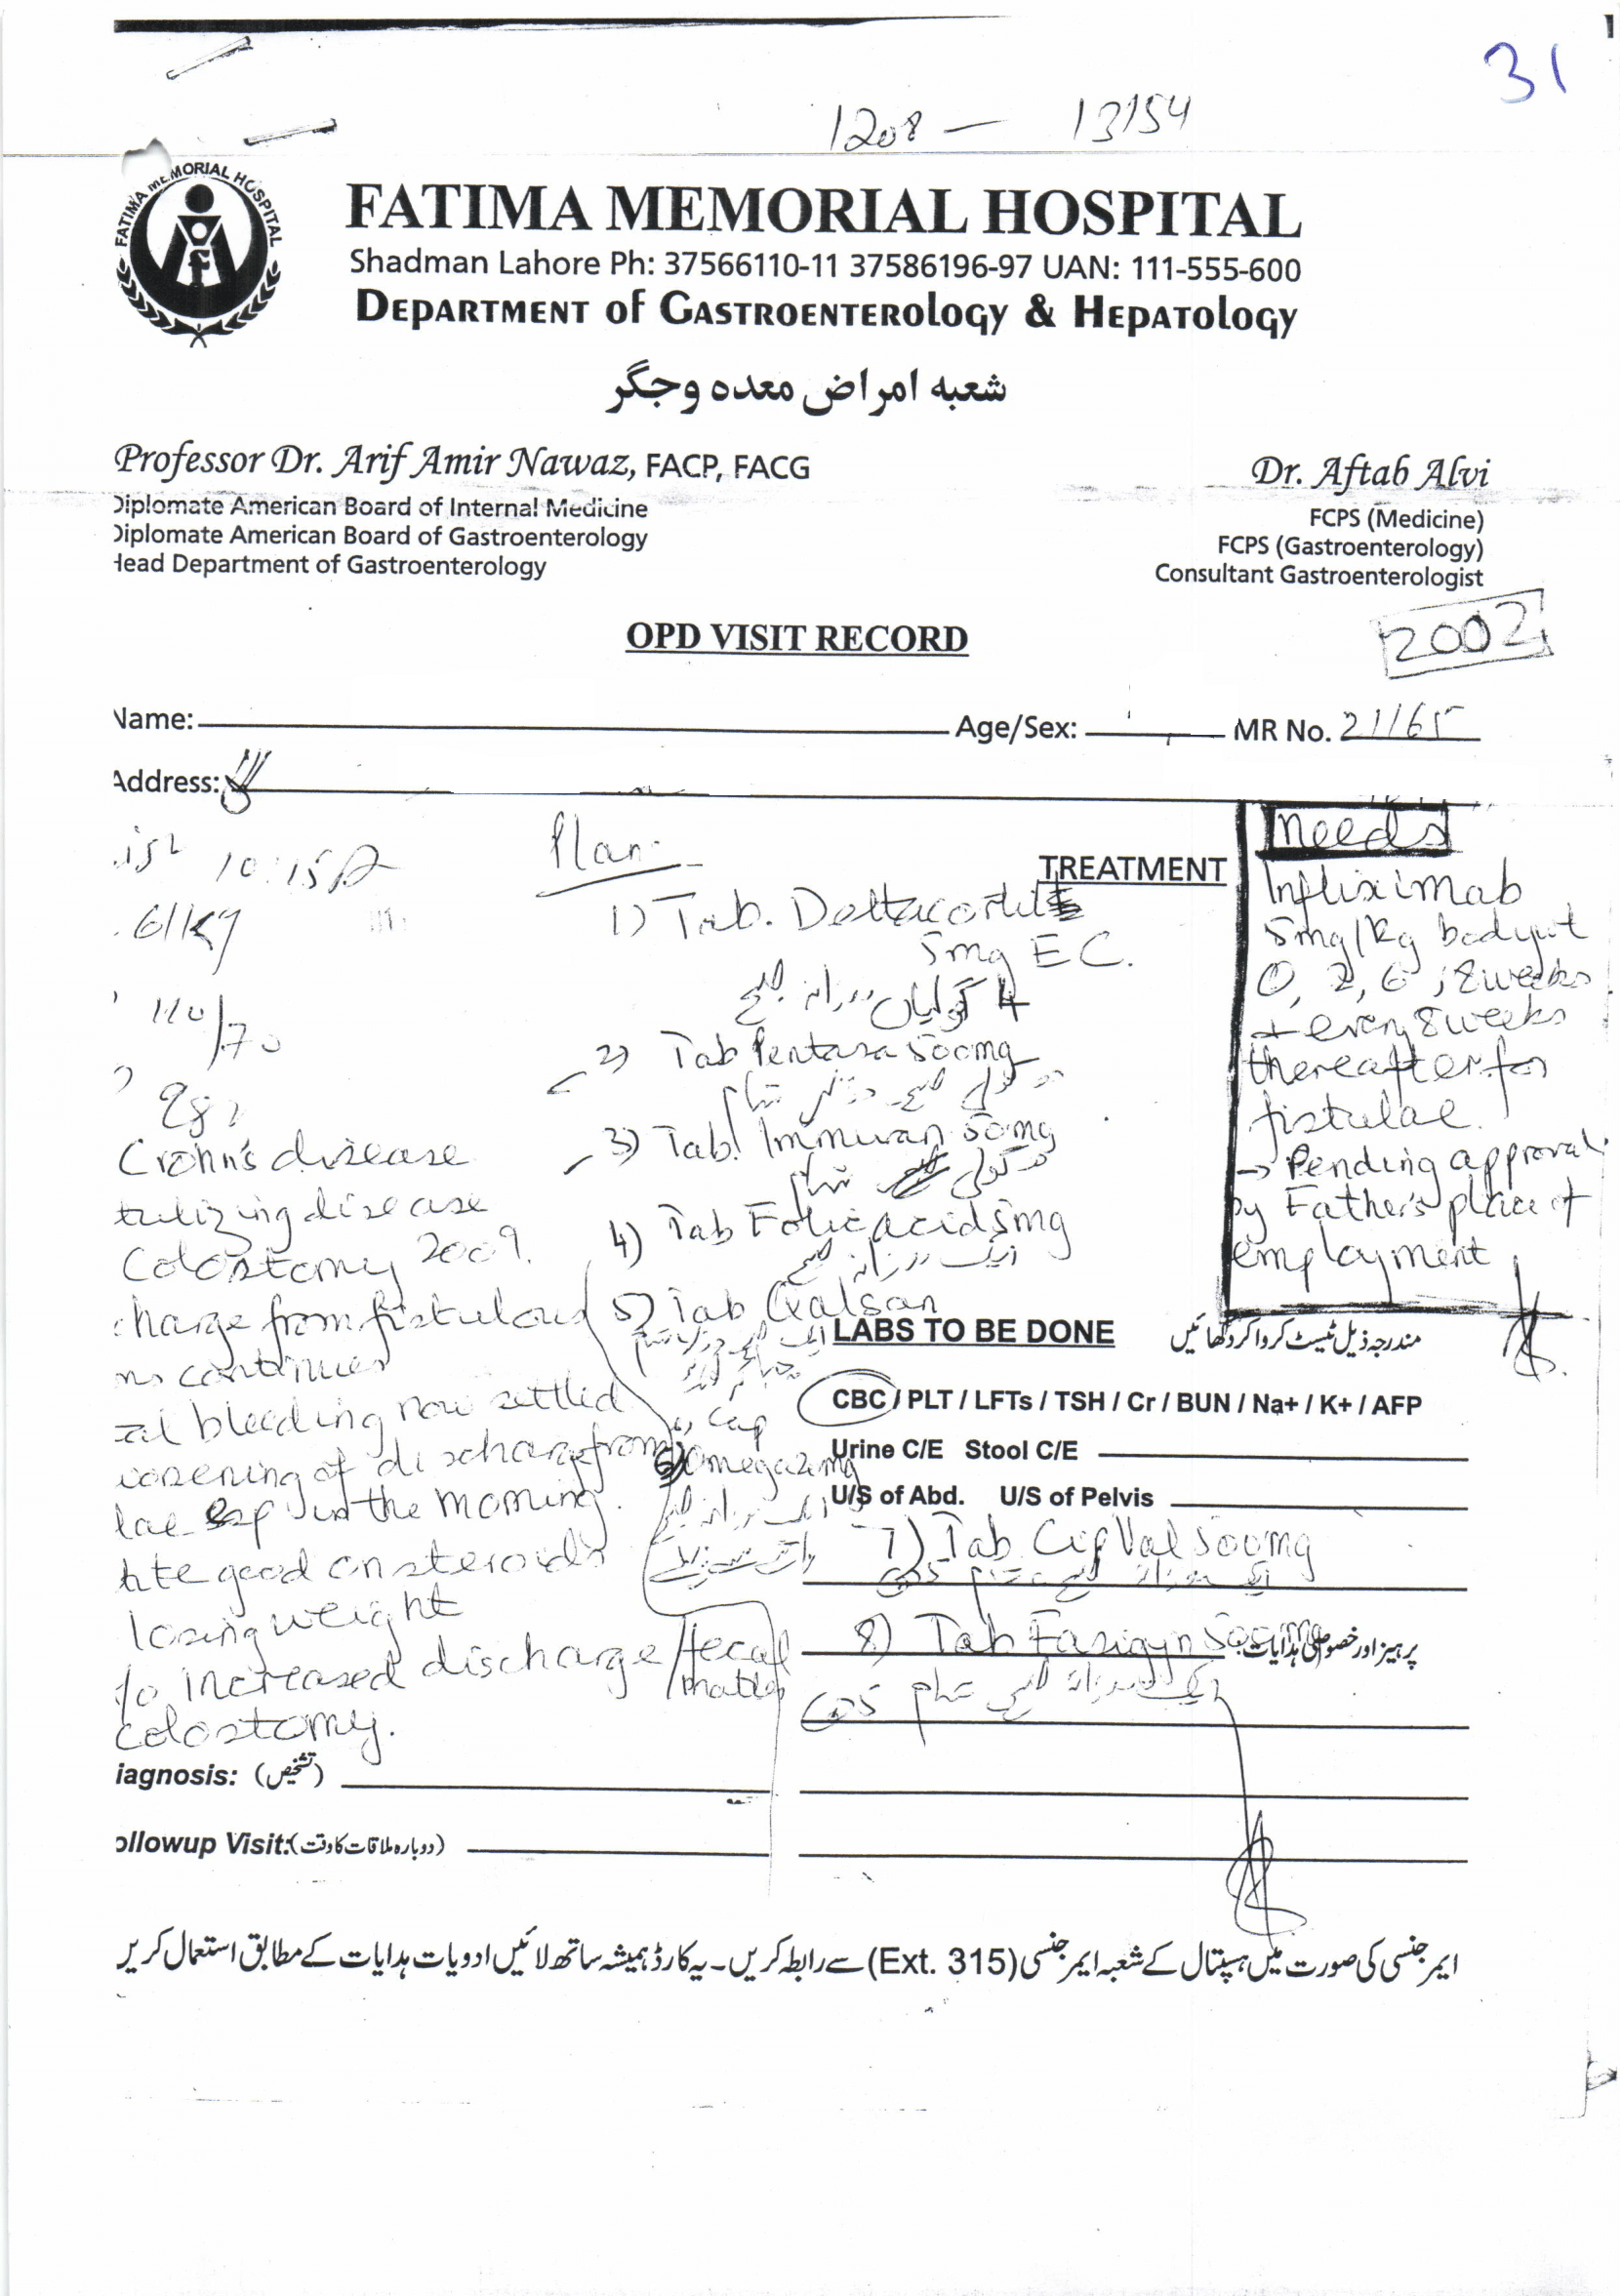 31
1208 — 13154
FATIMA MEMORIAL HOSPITAL
FATIMA MEMORIAL HOSPITAL
Shadman Lahore Ph: 37566110-11 37586196-97 UAN: 111-555-600
DEPARTMENT of GASTROENTEROLOGY & HEPATOLOGY
شعبہ امراض معدہ وجگر
Professor Dr. Arif Amir Nawaz, FACP, FACG
Diplomate American Board of Internal Medicine
Diplomate American Board of Gastroenterology
Head Department of Gastroenterology
Dr. Aftab Alvi
FCPS (Medicine)
FCPS (Gastroenterology)
Consultant Gastroenterologist
2002
OPD VISIT RECORD
Name: Age/Sex: MR No. 21165
Address:
10:15
61kg
110/70
98
Crohn's disease
tulizing disease
Colostomy 2009.
charge from fistulous
ns continues
al bleeding now settled
worsening of discharge from
lae esp in the morning.
tite good on steroids
losing weight
/o increased discharge/fecal matter
colostomy.
Plan:
TREATMENT
1) Tab. Deltacortil
5mg EC.
4 گولیاں روزانہ صبح
2) Tab Pentasa 500mg
3) Tab. Immuran 50mg
4) Tab Folic acid 5mg
ایک روزانہ صبح
5) Tab Qalsan
6) Cap Omega 20mg
7) Tab Cip Val 500mg
8) Tab Fasigyn 500mg
Needs
Infliximab
5mg/kg body wt
0, 2, 6, 8 weeks
+ every 8 weeks
thereafter for
fistulae.
→ Pending approval
by Father's place of
employment
LABS TO BE DONE مندرجہ ذیل ٹیسٹ کروا کر دکھائیں
CBC / PLT / LFTs / TSH / Cr / BUN / Na+ / K+ / AFP
Urine C/E Stool C/E
U/S of Abd. U/S of Pelvis
پرہیز اور خصوصی ہدایات:
iagnosis: (تشخیص)
ollowup Visit:(دوبارہ ملاقات کا وقت)
ایمرجنسی کی صورت میں ہسپتال کے شعبہ ایمرجنسی (Ext. 315) سے رابطہ کریں۔ یہ کارڈ ہمیشہ ساتھ لائیں ادویات ہدایات کے مطابق استعمال کریں